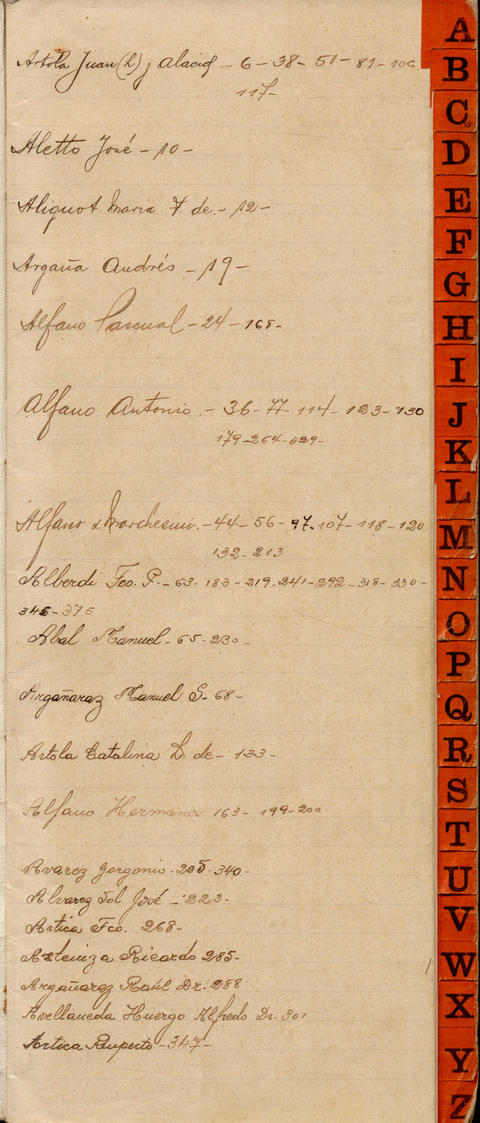 Artola Juan (h) y Alaciel - 6 - 38 - 51 - 81 - 106
117-
Aletto José - 10 -
Aliquot Maria F. de - 12 -
Argaña Andrés - 19 -
Alfano Pascual - 24 - 168 -
Alfano Antonio - 36 - 77 - 114 - 123 - 130
179 - 264 - 329 -
Alfano & Marchesini - 44 - 56 - 97 - 107 - 118 - 120
132 - 213
Alberdi Fco. P. - 63 - 183 - 219 - 241 - 292 - 318 - 330 -
346 - 375
Abal Manuel - 65 - 230 -
Argañaraz Manuel S. - 68 -
Artola Catalina L. de - 133 -
Alfano Hermanos 163 - 199 - 200
Avarez Gorgonio - 205 - 340 -
Alvarez Sol José - 223 -
Artica Fco. 268 -
Asteniza Ricardo 285 -
Argañaraz Raúl Dr. - 288
Avellaneda Huergo Alfredo Dr. 301
Artica Ruperto - 347 -
A
B
C
D
E
F
G
H
I
J
K
L
M
N
O
P
Q
R
S
T
U
V
W
X
Y
Z